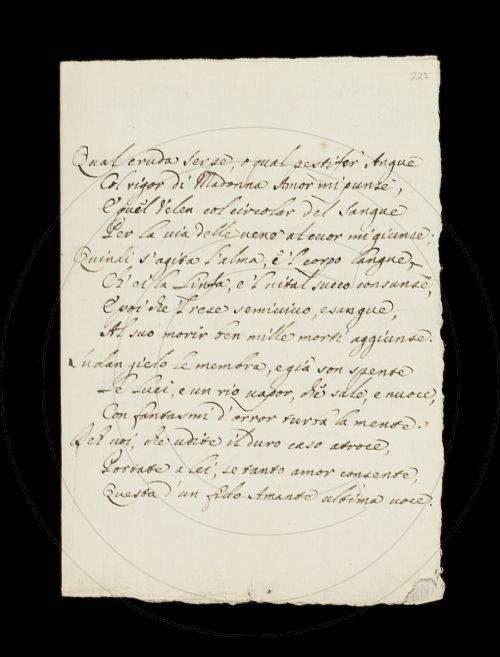 222
Qual cruda serpe, o qual pestifer Angue
Col rigor di Madonna Amor mi punse,
E quel Velen col circolar del sangue
Per la via delle vene al cuor mi giunse:
Quindi s'agita l'alma, e 'l corpo langue,
Ch'ei la Linfa, e 'l vital succo consunse,
E poi che 'l rese semivivo, esangue,
Al suo morir ben mille morti aggiunse.
Sudan gielo le membra, e già son spente
Le Luci, e un rio vapor, che sale, e nuoce,
Con fantasmi d'error turba la mente.
Deh voi, che udite il duro caso atroce,
Portate a lei, se tanto amor consente,
Questa d'un fido Amante ultima voce.